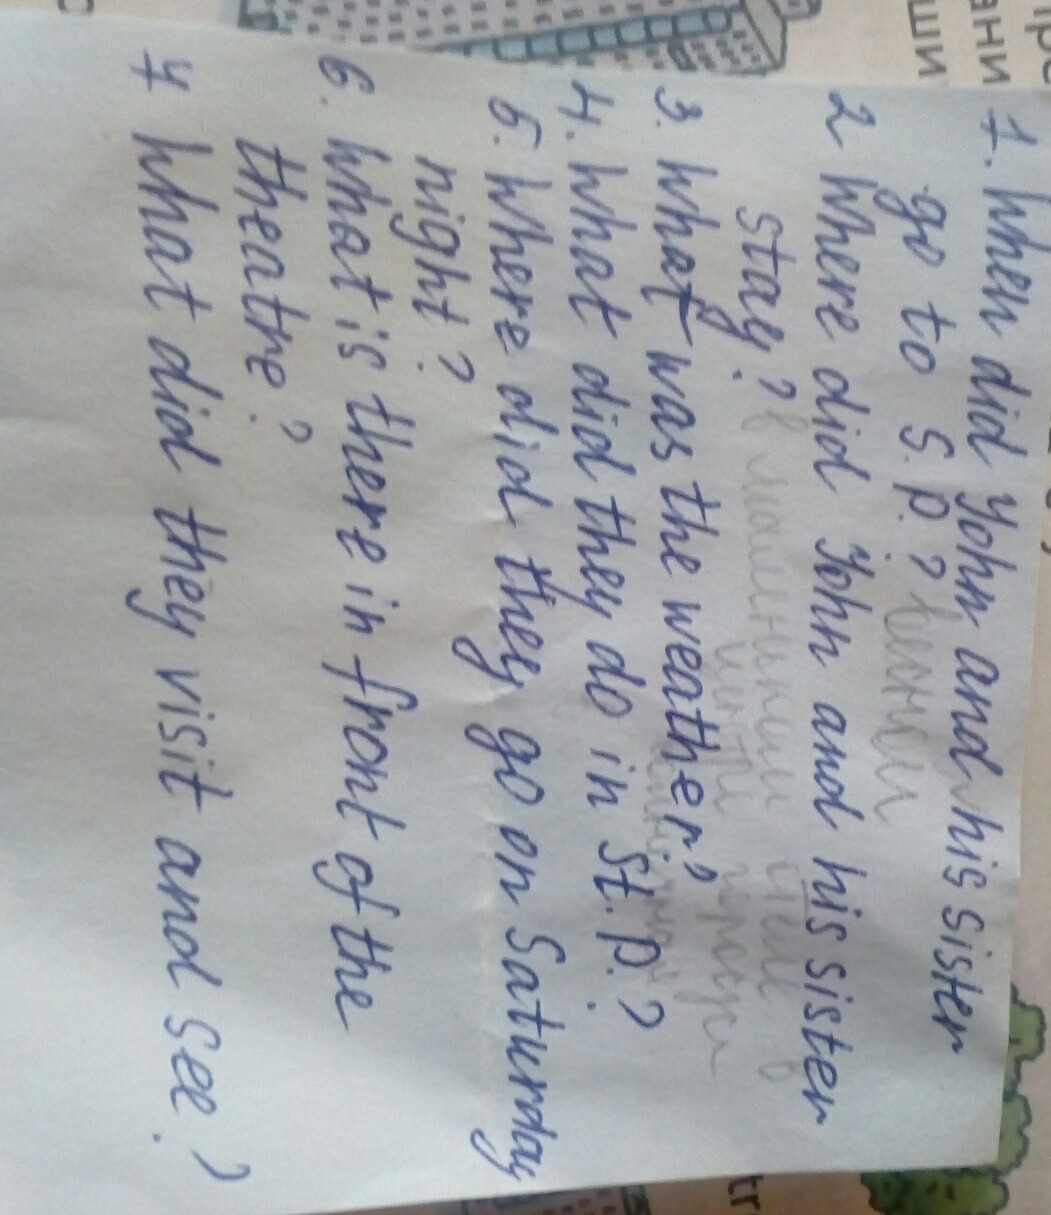 1. When did John and his sister
go to S.P.?
2 Where did John and his sister
stay?
3. What was the weather?
4. What did they do in St. P.?
5. Where did they go on Saturday
night?
6. What is there in front of the
theatre?
7 What did they visit and see?